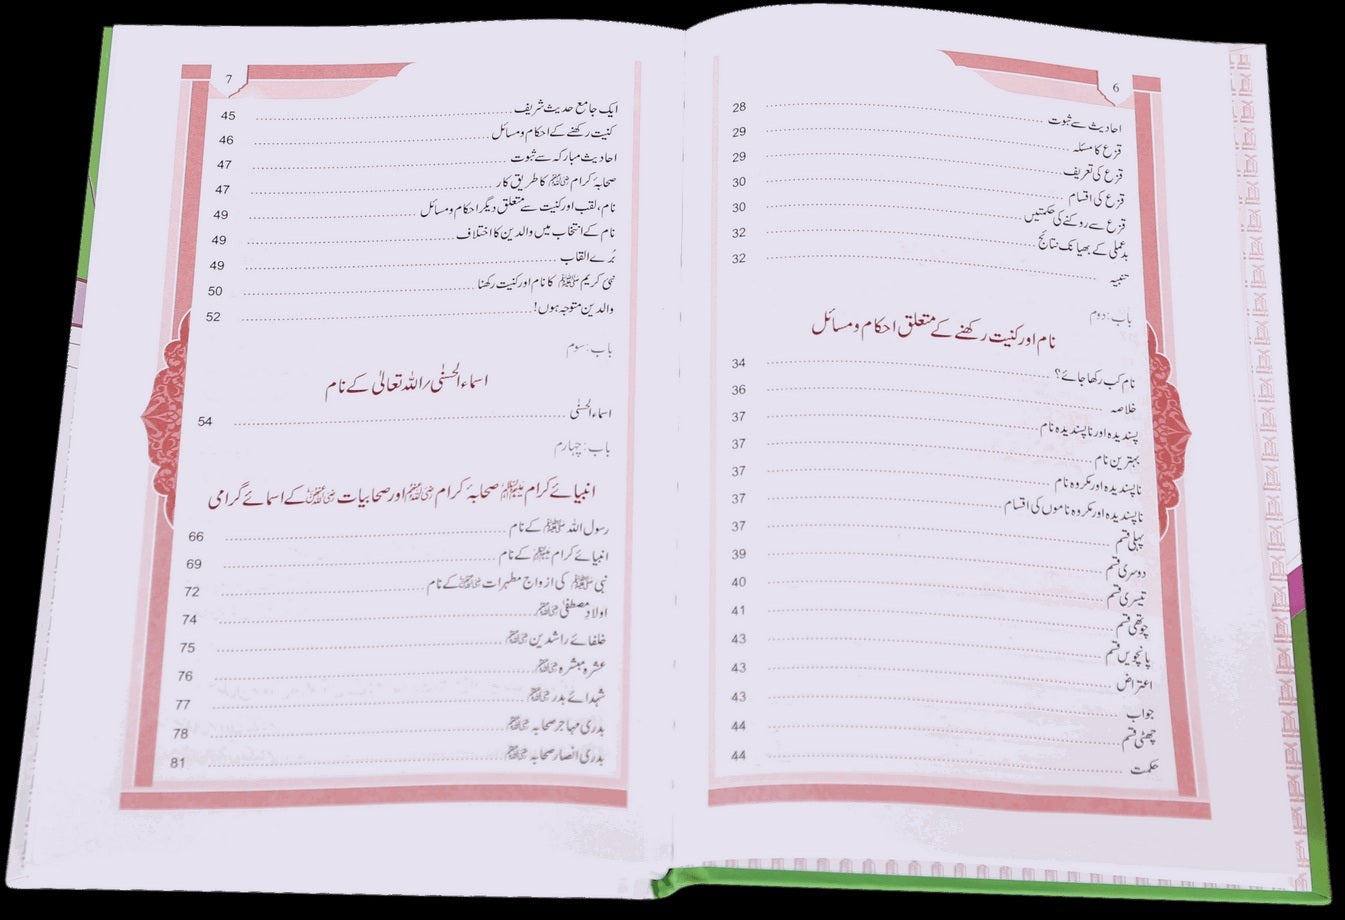 6
احادیث سے ثبوت 28
قزع کا مسئلہ 29
قزع کی تعریف 29
قزع کی اقسام 30
قزع سے روکنے کی حکمتیں 30
بدعملی کے بھیانک نتائج 32
تنبیہ 32
باب: دوم
نام اور کنیت رکھنے کے متعلق احکام ومسائل
نام کب رکھا جائے؟ 34
خلاصہ 36
پسندیدہ اور ناپسندیدہ نام 37
بہترین نام 37
ناپسندیدہ اور مکروہ نام 37
ناپسندیدہ اور مکروہ ناموں کی اقسام 37
پہلی قسم 37
دوسری قسم 39
تیسری قسم 40
چوتھی قسم 41
پانچویں قسم 43
اعتراض 43
جواب 43
چھٹی قسم 44
حکمت 44
7
ایک جامع حدیث شریف 45
کنیت رکھنے کے احکام ومسائل 46
احادیث مبارکہ سے ثبوت 47
صحابۂ کرام رضی اللہ عنہم کا طریق کار 47
نام، لقب اور کنیت سے متعلق دیگر احکام ومسائل 49
نام کے انتخاب میں والدین کا اختلاف 49
بُرے القاب 49
نبی کریم ﷺ کا نام اور کنیت رکھنا 50
والدین متوجہ ہوں! 52
باب: سوم
اسماء الحسنٰی / اللہ تعالیٰ کے نام
اسماء الحسنٰی 54
باب: چہارم
انبیائے کرام علیہم السلام صحابۂ کرام رضی اللہ عنہم اور صحابیات رضی اللہ عنہن کے اسمائے گرامی
رسول اللہ ﷺ کے نام 66
انبیائے کرام علیہم السلام کے نام 69
نبی ﷺ کی ازواج مطہرات رضی اللہ عنہن کے نام 72
اولادِ مصطفیٰ رضی اللہ عنہم 74
خلفائے راشدین رضی اللہ عنہم 75
عشرہ مبشرہ رضی اللہ عنہم 76
شہدائے بدر رضی اللہ عنہم 77
بدری مہاجر صحابہ رضی اللہ عنہم 78
بدری انصار صحابہ رضی اللہ عنہم 81